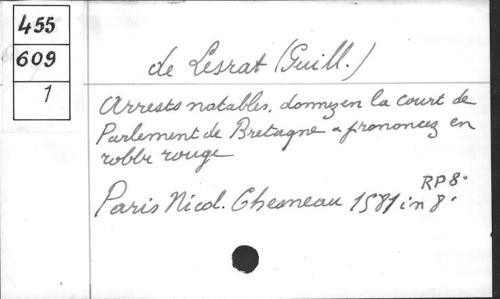 455
609
1
de Lesrat (Guill.)
Arrests notables, donnyen la court de
Parlement de Bretagne a prononcez en
robbe rouge
RP 8°
Paris Nicol. Chesneau 1581 in 8°